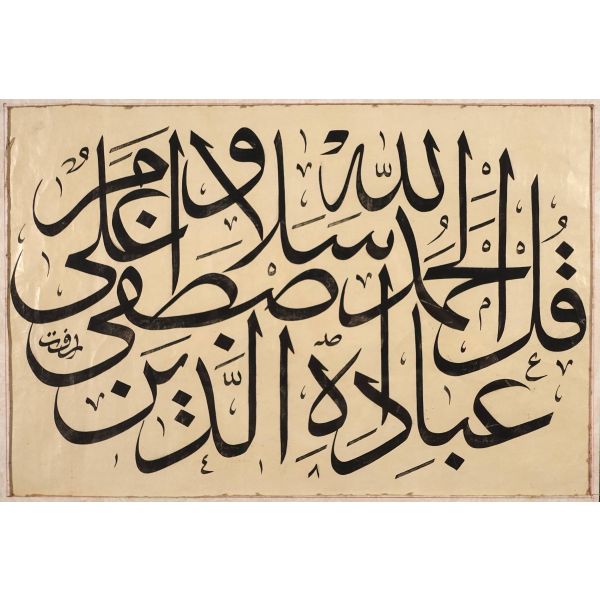 قُل الْحَمْدُ لله وَ سَلَامٌ عَلى
عبادِهِ الَّذينَ اصطفى
١٤١٨